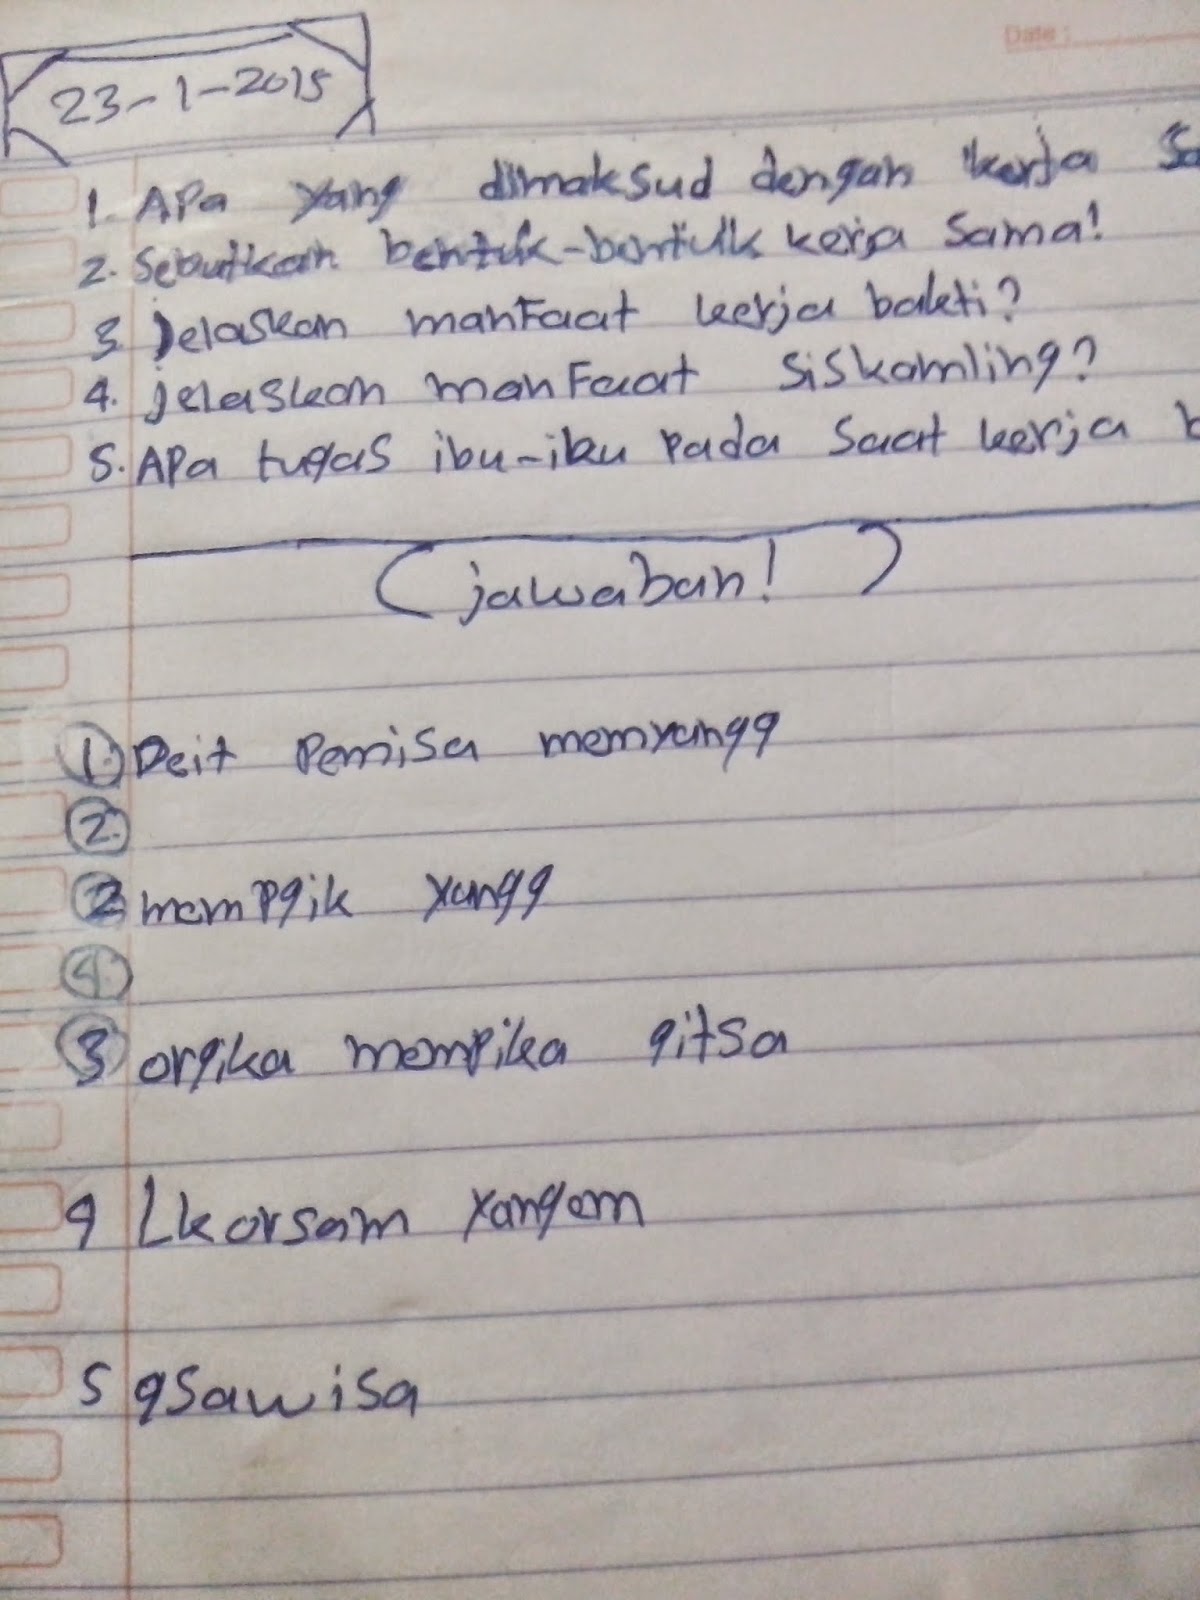 Date :
23-1-2015
1. Apa yang dimaksud dengan kerja Sa
2. Sebutkan bentuk-bentuk kerja Sama!
3. Jelaskan manfaat kerja bakti?
4. jelaskan manfaat siskamling?
5. Apa tugas ibu-iku pada saat kerja b
(jawaban!)
1. Deit Pemisa memyangg
2.
2. mempgik yangg
4.
3 orgika mempika gitsa
4 Lkorsam yangem
5 gsawisa